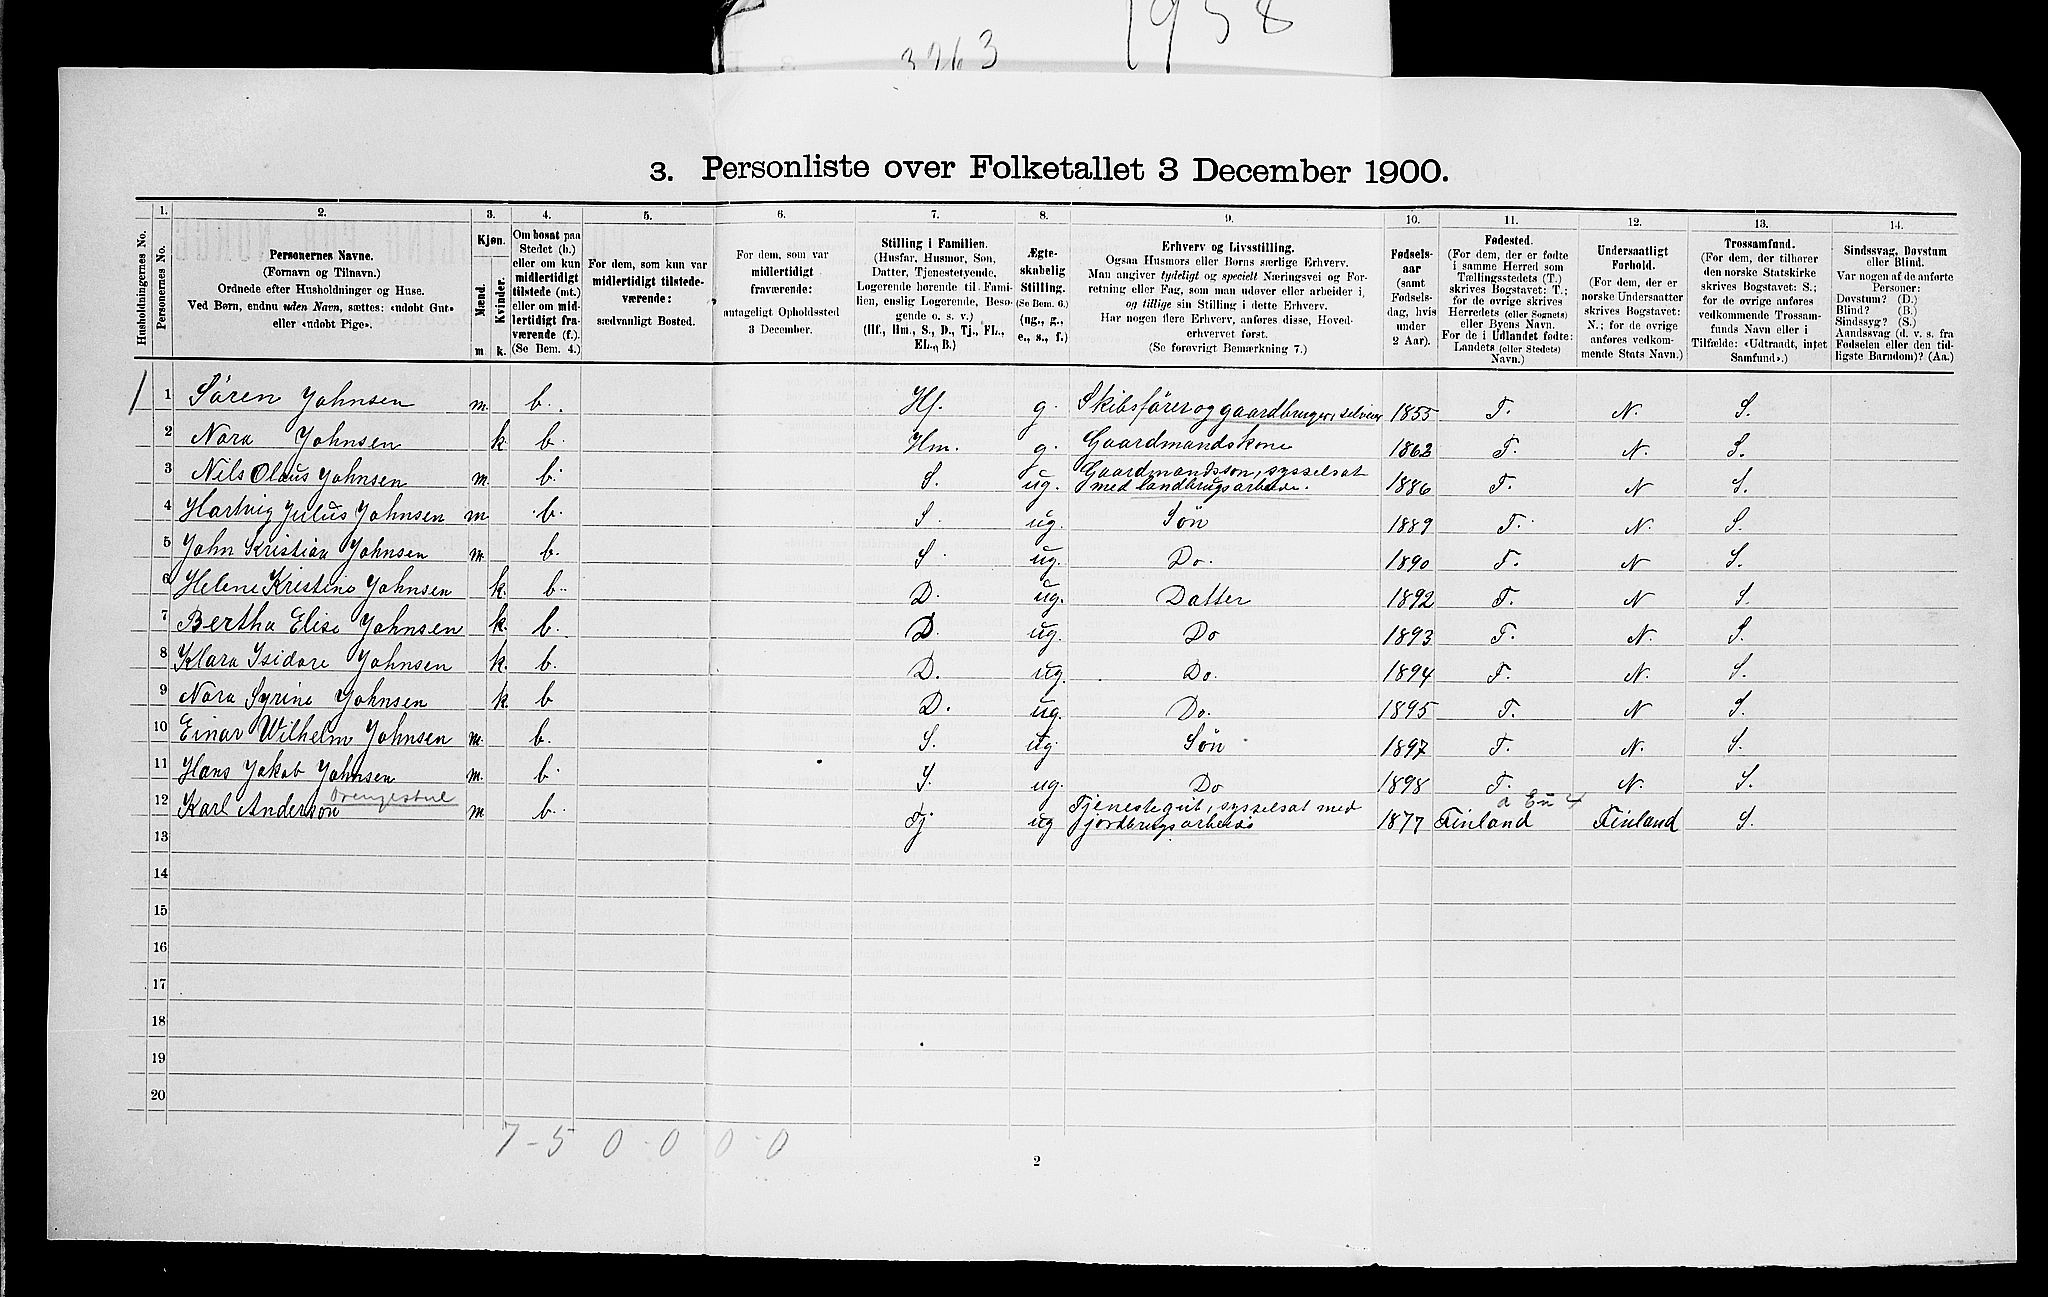 1958
3263
3. Personliste over Folketallet 3 December 1900.
1. 2. 3. 4. 5. 6. 7. 8. 9. 10. 11. 12. 13. 14.
Husholdningernes No.
Personernes No.
Personernes Navne.
(Fornavn og Tilnavn.)
Ordnede efter Husholdninger og Huse.
Ved Børn, endnu uden Navn, sættes: «udobt Gut»
eller «udobt Pige».
Kjøn.
Mænd.
Kvinder.
m. k.
Om bosat paa
Stedet (b.)
eller om kun
midlertidigt
tilstede (mt.)
eller om mid-
lertidigt fra-
værende (f.).
(Se Bem. 4.)
For dem, som kun var
midlertidigt tilstede-
værende:
sædvanligt Bosted.
For dem, som var
midlertidigt
fraværende:
antageligt Opholdssted
3 December.
Stilling i Familien.
(Husfar, Husmor, Søn,
Datter, Tjenestetyende,
Logerende hørende til Fami-
lien, enslig Logerende, Besø-
gende o. s. v.)
(Hf., Hm., S., D., Tj., FL.,
EL., B.)
Ægte-
skabelig
Stilling.
(Se Bem. 6.)
(ug., g.,
e., s., f.)
Erhverv og Livsstilling.
Ogsaa Husmors eller Børns særlige Erhverv.
Man angiver tydeligt og specielt Næringsvei og For-
retning eller Fag, som man udøver eller arbeider i,
og tillige sin Stilling i dette Erhverv.
Har nogen flere Erhverv, anføres disse, Hoved-
erhvervet først.
(Se forøvrigt Bemærkning 7.)
Fødsels-
aar
(samt
Fødsels-
dag, hvis
under
2 Aar).
Fødested.
(For dem, der er fødte
i samme Herred som
Tællingsstedets (T.)
skrives Bogstavet: T.;
for de øvrige skrives
Herredets (eller Sognets)
eller Byens Navn.
For de i Udlandet fødte:
Landets (eller Stedets)
Navn.)
Undersaatligt
Forhold.
(For dem, der er
norske Undersaatter
skrives Bogstavet:
N.; for de øvrige
anføres vedkom-
mende Stats Navn.)
Trossamfund.
(For dem, der tilhører
den norske Statskirke
skrives Bogstavet: S.;
for de øvrige anføres
vedkommende Trossam-
funds Navn eller i
Tilfælde: «Udtraadt, intet
Samfund».)
Sindssvag, Døvstum
eller Blind.
Var nogen af de anførte
Personer:
Døvstum? (D.)
Blind? (B.)
Sindssyg? (S.)
Aandssvag (d. v. s. fra
Fødselen eller den tid-
ligste Barndom)? (Aa.)
1 1 Sören Johnsen m. b. Hf. g. Skibsförer og gaardbruger, selveier 1855 T. N. S.
2 Nora Johnsen k. b. Hm. g. Gaardmandskone 1862 T. N. S.
3 Nils Olaus Johnsen m. b. S. ug. Gaardmandsson, sysselsat
med landbrugsarbeide. 1886 T. N S.
4 Hartvig Julius Johnsen m b. S. ug. Sön 1889 T. N. S.
5 John Kristian Johnsen m. b. S. ug. Do. 1890 T. N S.
6 Helene Kristine Johnsen k. b. D. ug. Datter 1892 T. N S.
7 Bertha Elise Johnsen k. b. D. ug. Do 1893 T. N. S.
8 Klara Isidore Johnsen k. b. D. ug. Do. 1894 T. N. S.
9 Nora Syrine Johnsen k. b D. ug. Do. 1895 T. N S.
10 Einar Wilhelm Johnsen m. b. S. ug. Sön 1897 T. N. S.
11 Hans Jakob Johnsen m. b. S. ug. Do 1898 T. N. S.
12 Karl Anderson m b. Tj ug Tjenestegut, sysselsat med
jordbrugsarbeide 1877 Finland Finland S.
13
14
15
16
17
18
19
20
7 - 5 0 - 0 0 - 0
2